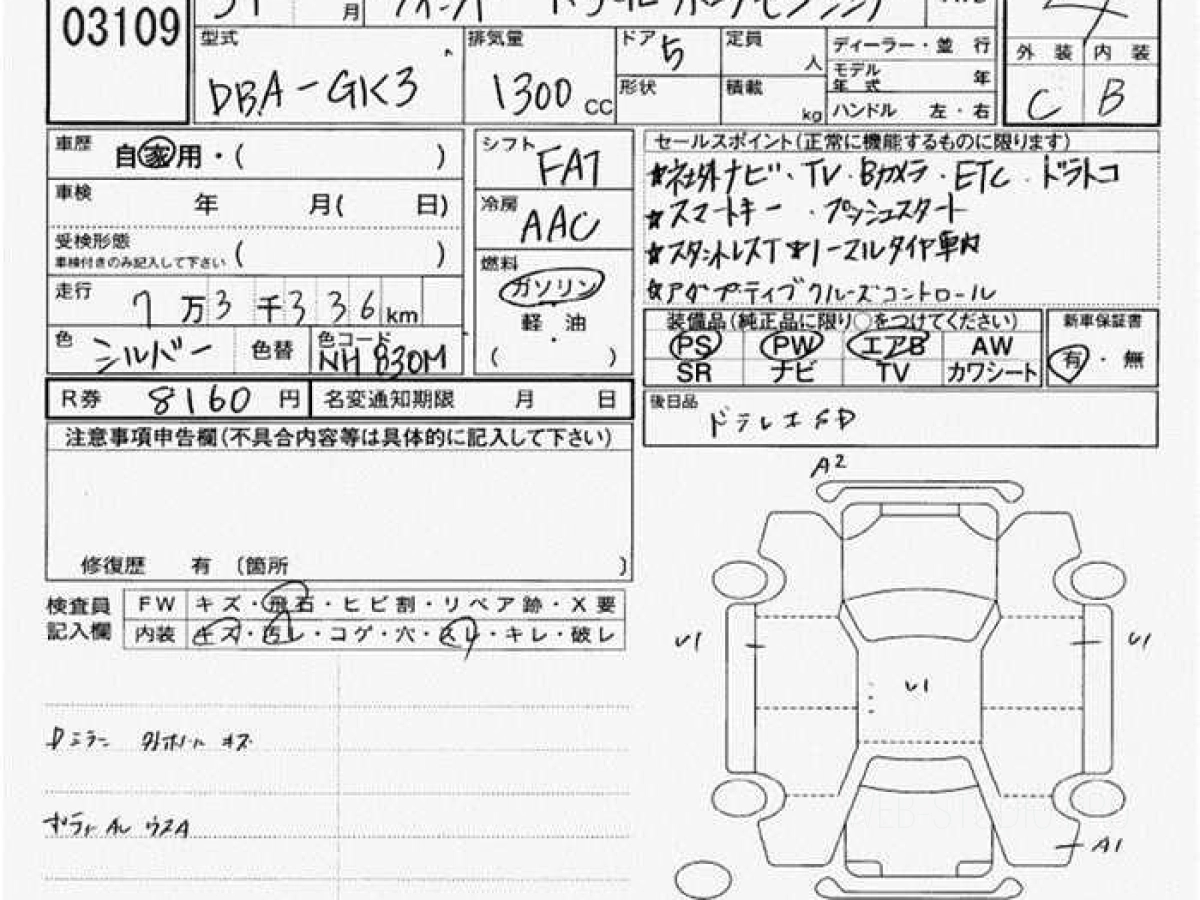 03109
31 月
4
型式 DBA-GK3
排気量 1300 CC
ドア 5
形状
定員 人
積載 kg
ディーラー・並 行
モデル年式 年
ハンドル 左・右
外 装 内 装
C B
車歴 自家用・( )
車検 年 月( 日)
受検形態
車検付きのみ記入して下さい ( )
走行 7万3千336km
色 シルバー 色替 色コード NH830M
シフト FAT
冷房 AAC
燃料
ガソリン
軽 油
( )
セールスポイント(正常に機能するものに限ります)
★社外ナビ・TV・Bカメラ・ETC・ドラレコ
★スマートキー ・プッシュスタート
★スタットレスT ※ノーマルタイヤ車内
★アダプティブクルーズコントロール
装備品(純正品に限り○をつけてください)
PS PW エアB AW
SR ナビ TV カワシート
新車保証書
有・無
R券 8160 円 名変通知期限 月 日
後日品
注意事項申告欄(不具合内容等は具体的に記入して下さい)
修復歴 有 〔箇所 〕
検査員記入欄
FW キズ・飛石・ヒビ割・リペア跡・X要
内装 キズ・汚レ・コゲ・穴・スレ・キレ・破レ
Dミラー キズ
A2
U1 U1 U1
A1